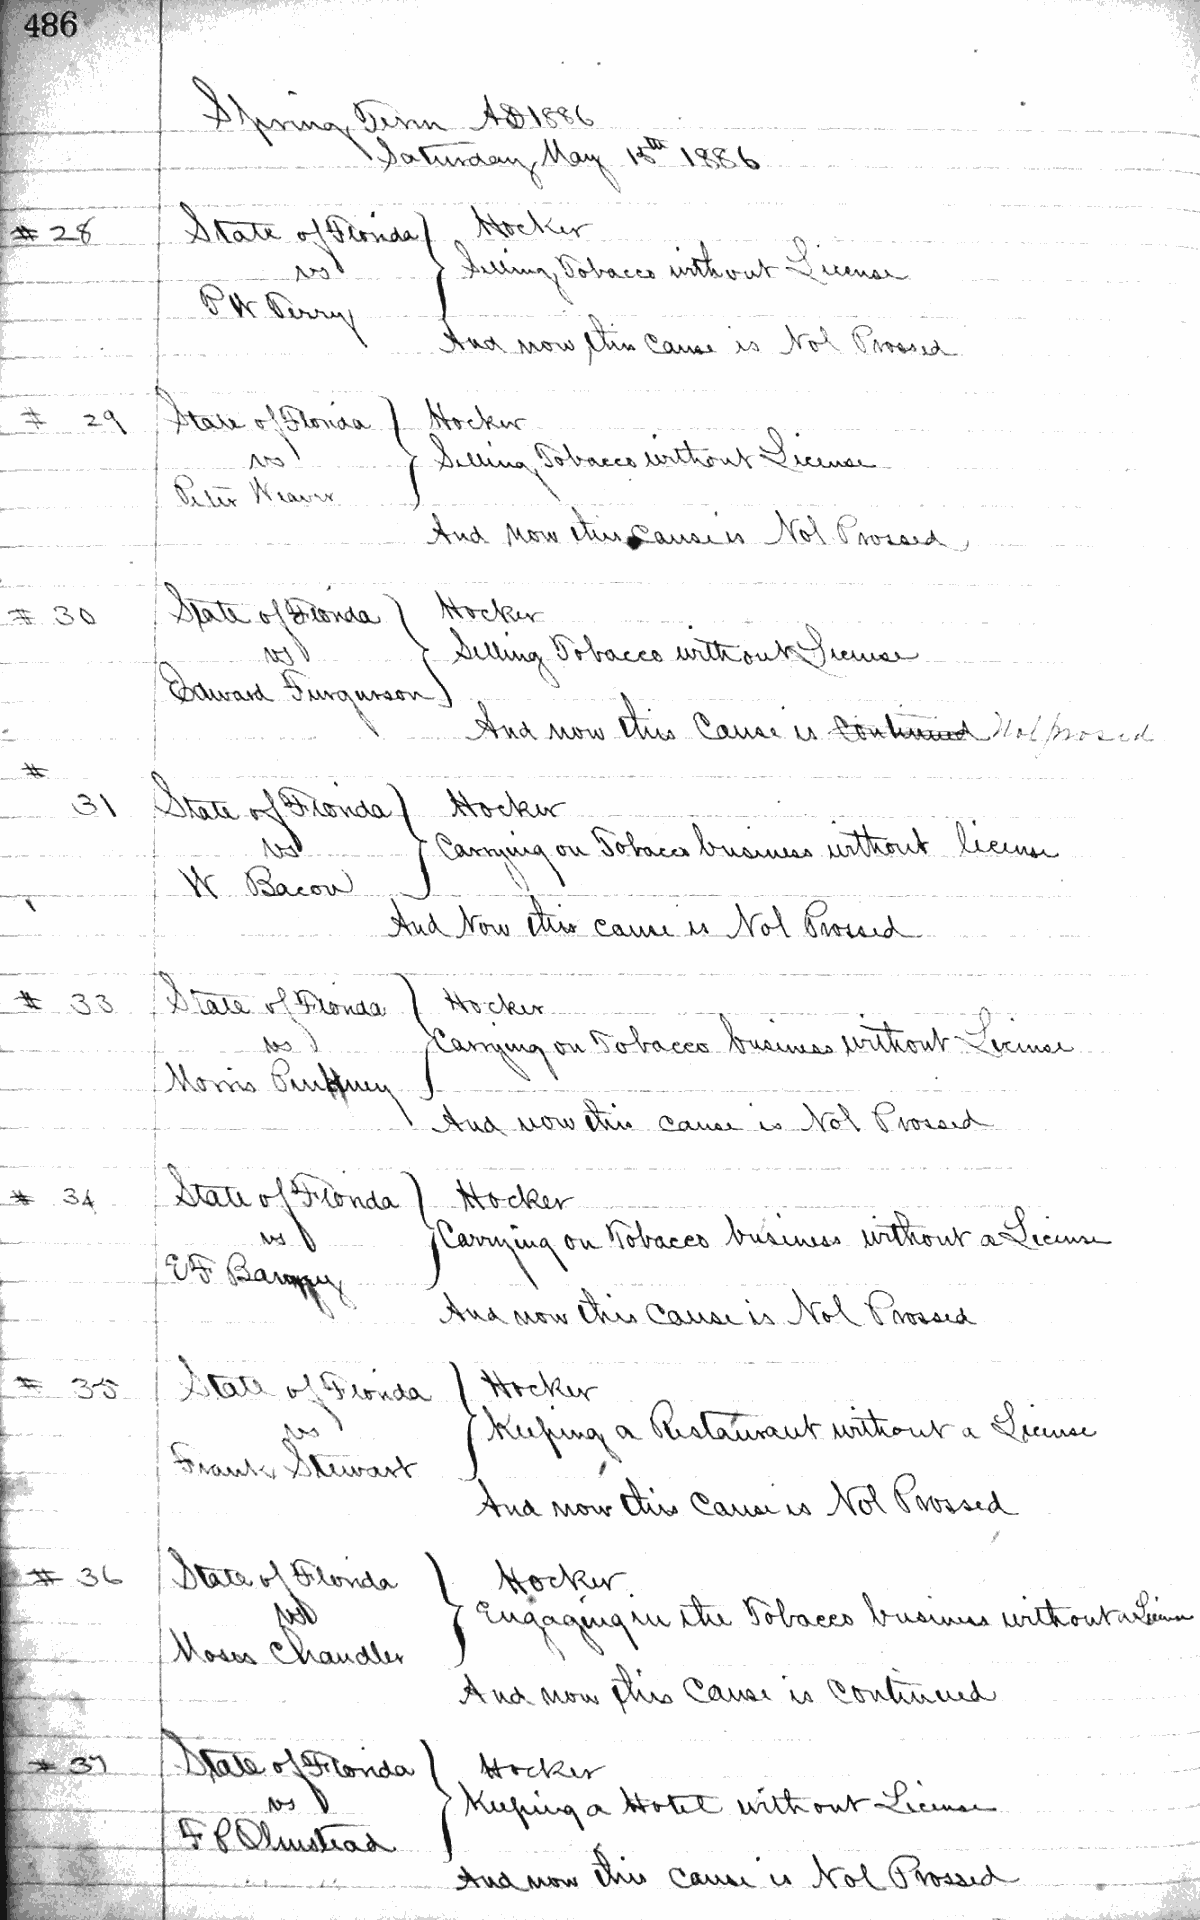 486
Spring Term AD 1886
Saturday, May 15th 1886
# 28 State of Florida } Hocker
vs Selling Tobacco without License
P W Perry
And now this Cause is Nol Prossed
# 29 State of Florida } Hocker
vs Selling Tobacco without License
Peter Weaver
And Now this Cause is Nol Prossed
# 30 State of Florida } Hocker
vs Selling Tobacco without License
Edward Furgurson
And now this Cause is Continued Nol prosed
#
31 State of Florida } Hocker
vs Carrying on Tobacco business without license
W Bacon
And Now this cause is Nol Prossed
# 33 State of Florida } Hocker
vs Carrying on Tobacco business without License
Morris Pinkney
And now this cause is Nol Prossed
# 34 State of Florida } Hocker
vs Carrying on Tobacco business without a License
E F
And now this Cause is Nol Prossed
# 35 State of Florida } Hocker
vs Keeping a Restaurant without a License
Frank Stewart
And now this Cause is Nol Prossed
# 36 State of Florida } Hocker
vs Engaging in the Tobacco business without a License
Moses Chandler
And now this Cause is Continued
# 37 State of Florida } Hocker
vs Keeping a Hotel without License
F P Olmstead
And now this Cause is Nol Prossed